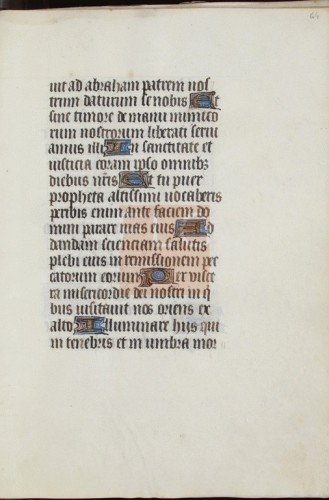 uit ad abraham patrem nos
trum daturum se nobis Ut
sine timore de manu inimico
rum nostrorum liberati servi
amus illi In sanctitate et
iusticia coram ipso omnibz
diebus nris Et tu puer
propheta altissimi vocaberis
preibis enim ante faciem do
mini parare vias eius Ad
dandam scienciam salutis
plebi eius in remissionem pec
catorum eorum Per visce
ra misericordie dei nostri in q
bus visitauit nos oriens ex
alto Illuminare hijs qui
in tenebris et in umbra mor